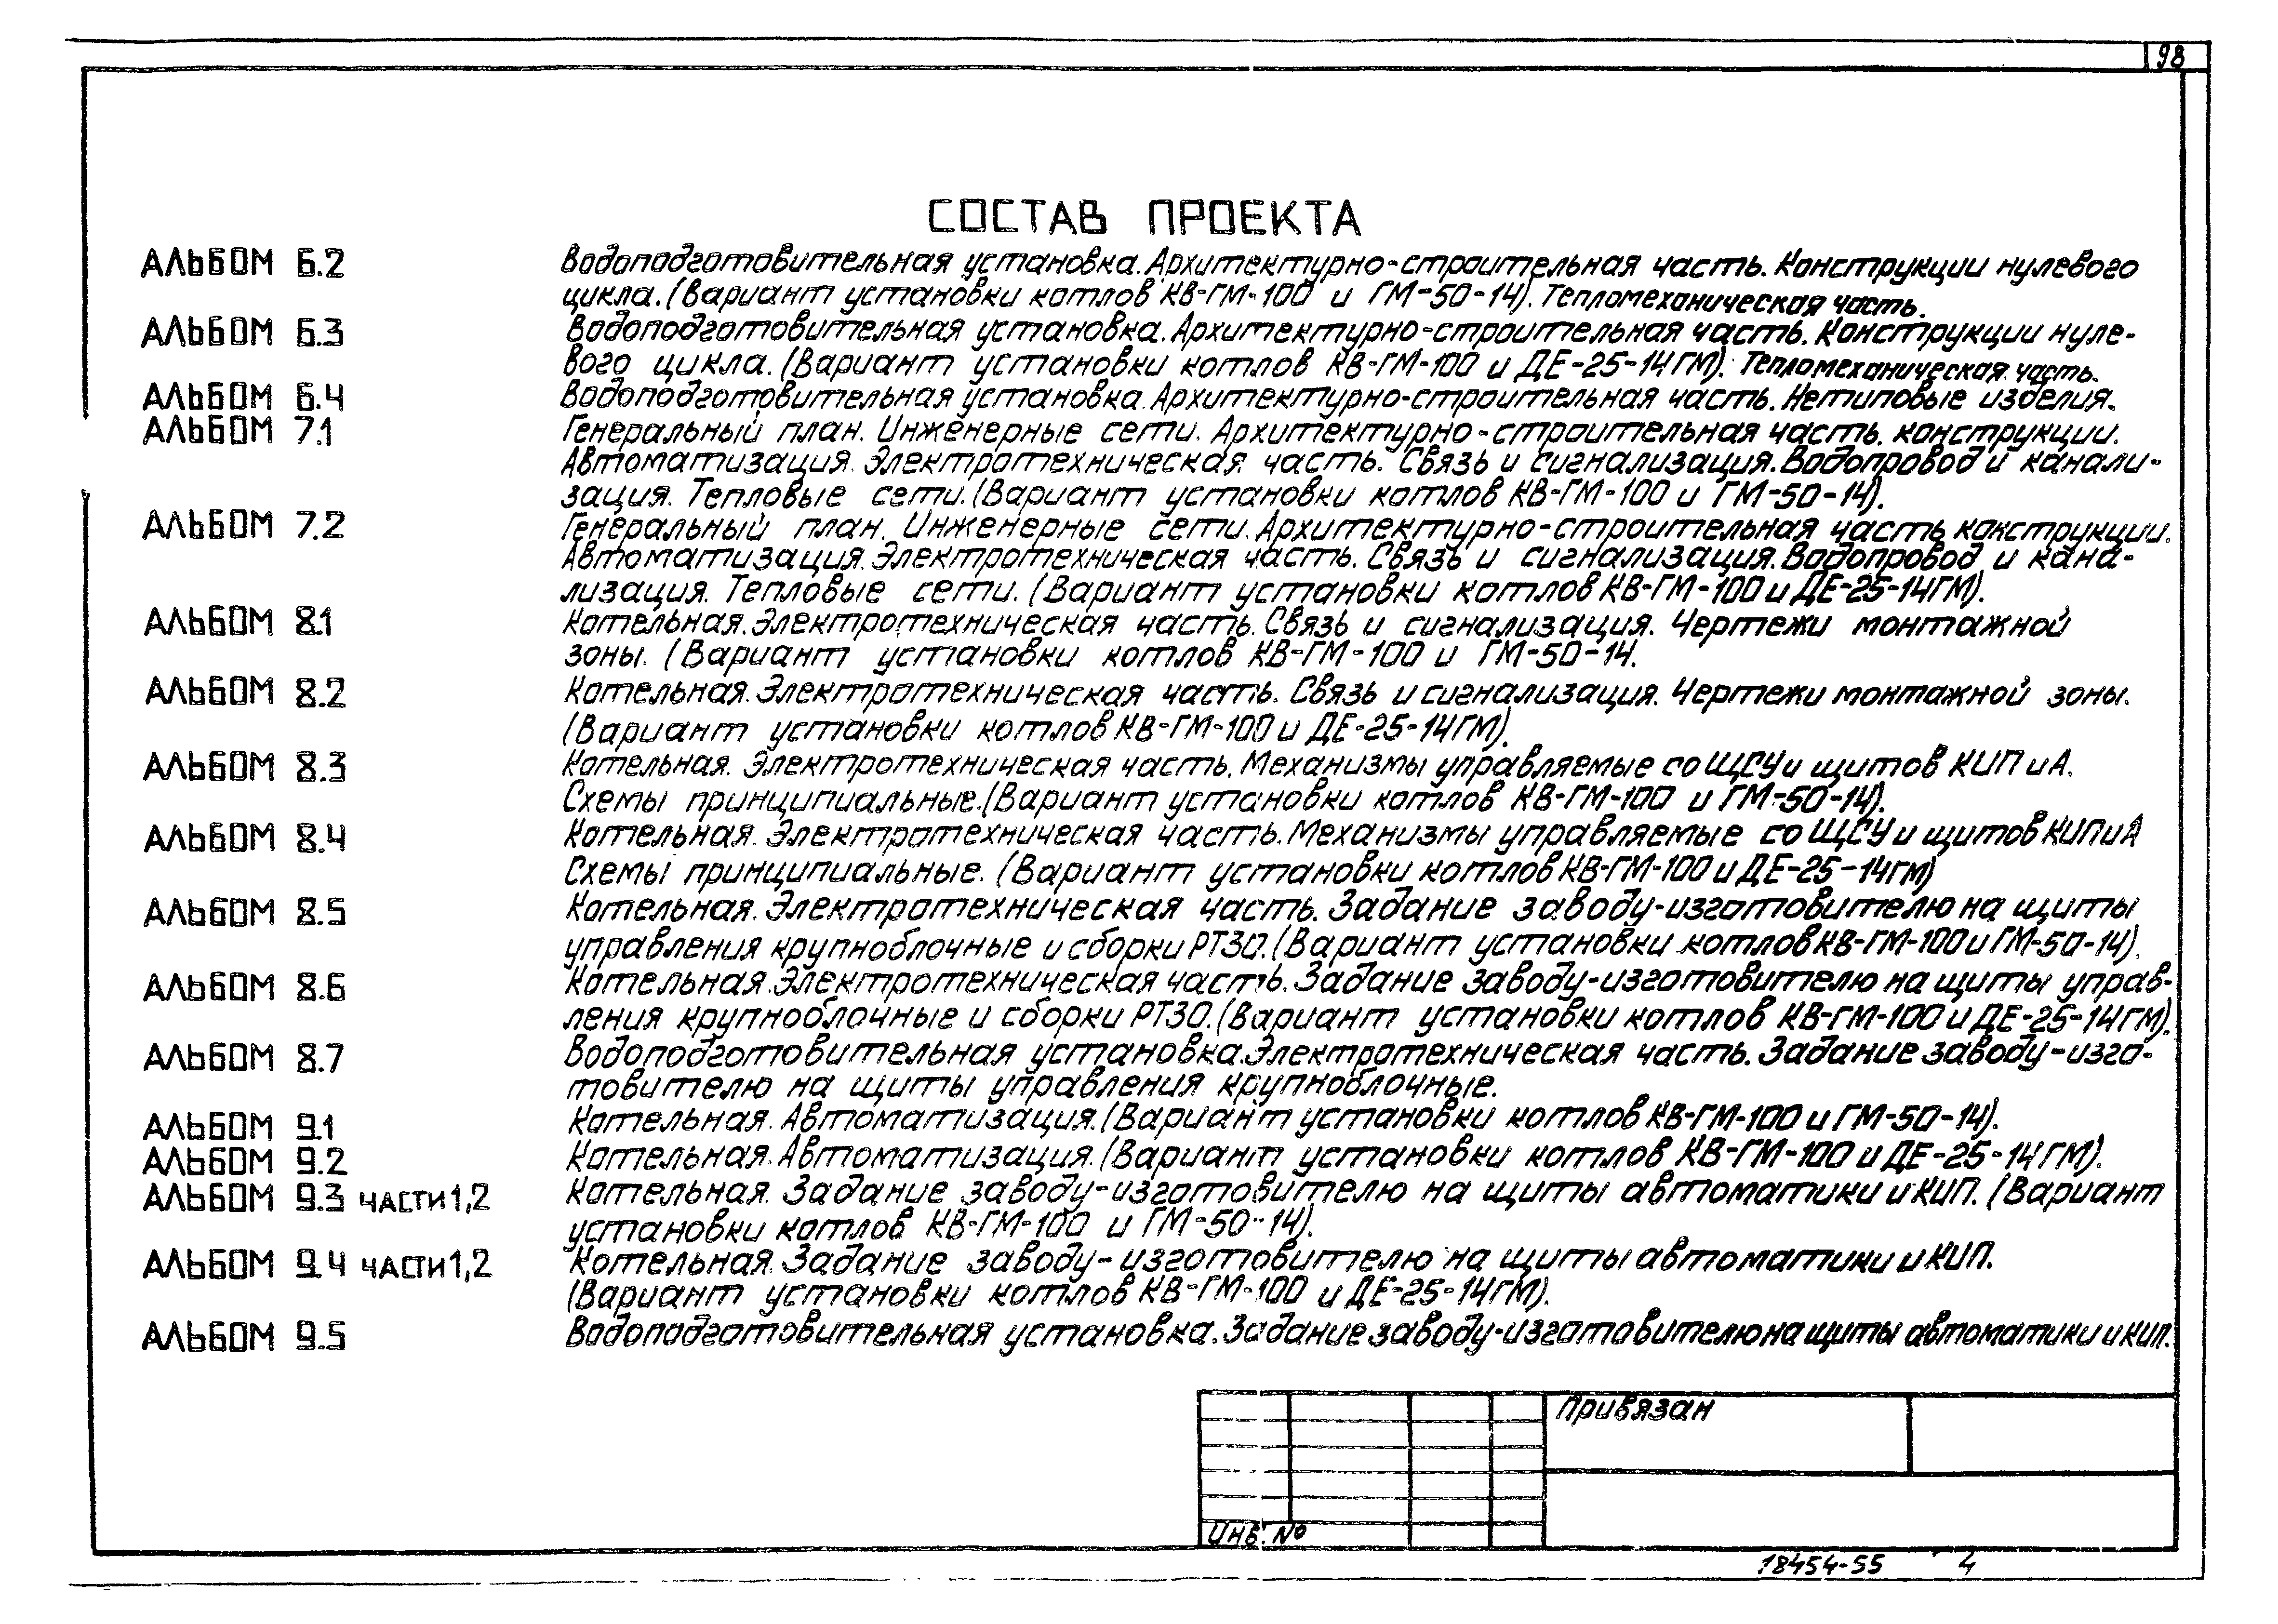 98
СОСТАВ ПРОЕКТА
АЛЬБОМ 6.2 Водоподготовительная установка. Архитектурно-строительная часть. Конструкции нулевого
цикла. (Вариант установки котлов КВ-ГМ-100 и ГМ-50-14). Тепломеханическая часть.
АЛЬБОМ 6.3 Водоподготовительная установка. Архитектурно-строительная часть. Конструкции нуле-
вого цикла. (Вариант установки котлов КВ-ГМ-100 и ДЕ-25-14ГМ). Тепломеханическая часть.
АЛЬБОМ 6.4 Водоподготовительная установка. Архитектурно-строительная часть. Нетиповые изделия.
АЛЬБОМ 7.1 Генеральный план. Инженерные сети. Архитектурно-строительная часть. конструкции.
Автоматизация. Электротехническая часть. Связь и сигнализация. Водопровод и канали-
зация. Тепловые сети. (Вариант установки котлов КВ-ГМ-100 и ГМ-50-14).
АЛЬБОМ 7.2 Генеральный план. Инженерные сети. Архитектурно-строительная часть конструкции.
Автоматизация. Электротехническая часть. Связь и сигнализация. Водопровод и кана-
лизация. Тепловые сети. (Вариант установки котлов КВ-ГМ-100 и ДЕ-25-14ГМ).
АЛЬБОМ 8.1 Котельная. Электротехническая часть. Связь и сигнализация. Чертежи монтажной
зоны. (Вариант установки котлов КВ-ГМ-100 и ГМ-50-14.
АЛЬБОМ 8.2 Котельная. Электротехническая часть. Связь и сигнализация. Чертежи монтажной зоны.
(Вариант установки котлов КВ-ГМ-100 и ДЕ-25-14ГМ).
АЛЬБОМ 8.3 Котельная. Электротехническая часть. Механизмы управляемые со ЩСУ и щитов КИП и А.
Схемы принципиальные. (Вариант установки котлов КВ-ГМ-100 и ГМ-50-14).
АЛЬБОМ 8.4 Котельная. Электротехническая часть. Механизмы управляемые со ЩСУ и щитов КИП и А
Схемы принципиальные. (Вариант установки котлов КВ-ГМ-100 и ДЕ-25-14ГМ)
АЛЬБОМ 8.5 Котельная. Электротехническая часть. Задание заводу-изготовителю на щиты
управления крупноблочные и сборки РТЗО. (Вариант установки котлов КВ-ГМ-100 и ГМ-50-14).
АЛЬБОМ 8.6 Котельная. Электротехническая часть. Задание заводу-изготовителю на щиты управ-
ления крупноблочные и сборки РТЗО. (Вариант установки котлов КВ-ГМ-100 и ДЕ-25-14ГМ).
АЛЬБОМ 8.7 Водоподготовительная установка. Электротехническая часть. Задание заводу-изго-
товителю на щиты управления крупноблочные.
АЛЬБОМ 9.1 Котельная. Автоматизация. (Вариант установки котлов КВ-ГМ-100 и ГМ-50-14).
АЛЬБОМ 9.2 Котельная. Автоматизация. (Вариант установки котлов КВ-ГМ-100 и ДЕ-25-14ГМ).
АЛЬБОМ 9.3 ЧАСТИ 1,2 Котельная. Задание заводу-изготовителю на щиты автоматики и КИП. (Вариант
установки котлов КВ-ГМ-100 и ГМ-50-14).
АЛЬБОМ 9.4 ЧАСТИ 1,2 Котельная. Задание заводу-изготовителю на щиты автоматики и КИП.
(Вариант установки котлов КВ-ГМ-100 и ДЕ-25-14ГМ).
АЛЬБОМ 9.5 Водоподготовительная установка. Задание заводу-изготовителю на щиты автоматики и КИП.
Привязан
Инв. №
18454-55 4